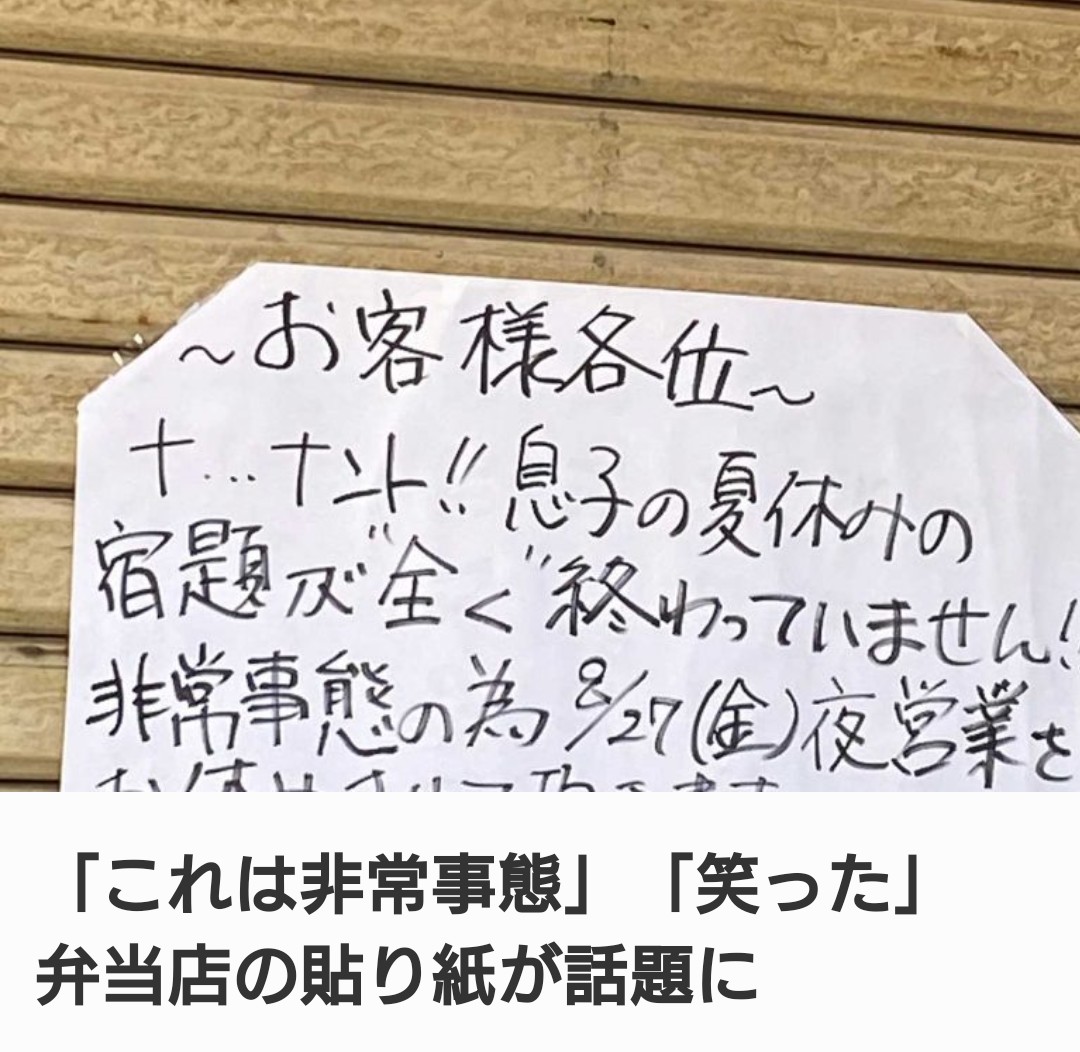 ～お客様各位～
ナ…ナント!!息子の夏休みの
宿題が"全く"終わっていません!!
非常事態の為8/27(金)夜営業を
「これは非常事態」「笑った」
弁当店の貼り紙が話題に